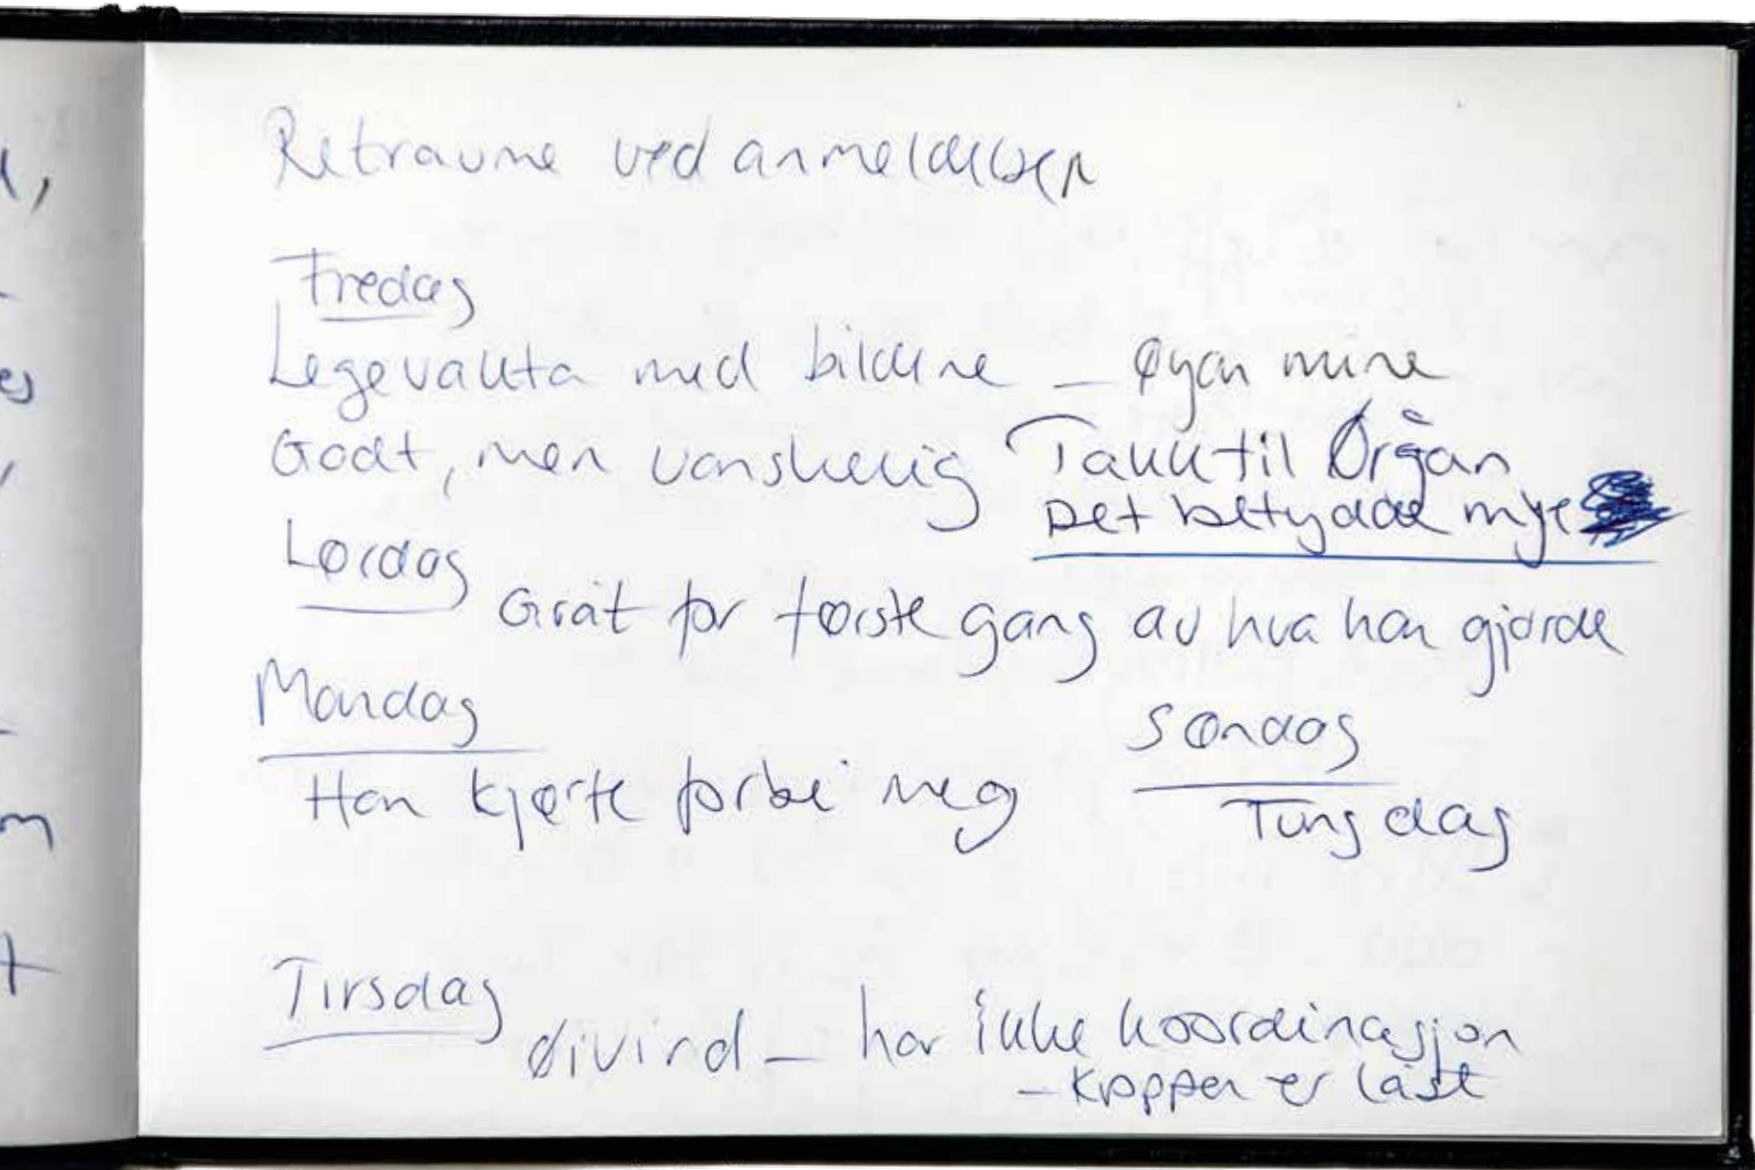 Retraume ved anmeldelsen
Fredag
Legevakta med bildene – Øyan mine
Godt, men vanskelig Takk til Ørjan
Det betydde mye
Lørdag
Gråt for første gang av hva han gjorde
Mandag
Søndag
Han kjørte forbi meg
Tung dag
Tirsdag
Øivind – har ikke koordinasjon
– kroppen er låst